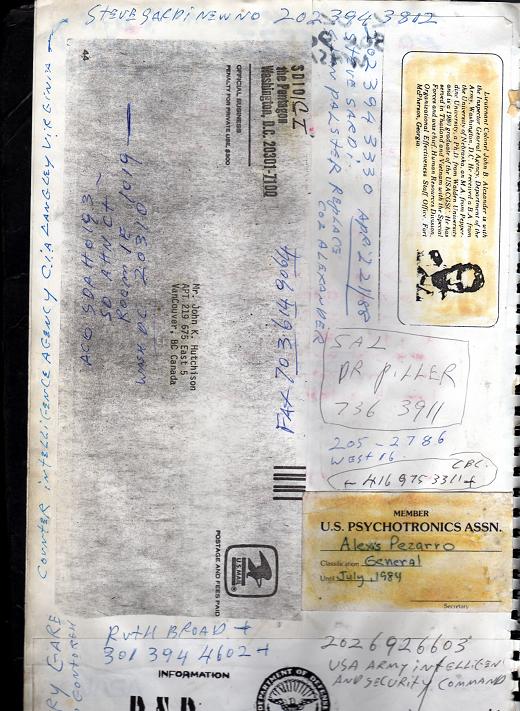 STEVE SARDI NEW NO 202 394 3802
COUNTER INTELLIGENCE AGENCY C.I.A LANGLEY VIRGINIA
202 394 3330 APR 22 1/88
STEVE SARDI
PALSTER REPLACE
COL ALEXANDER
Lieutenant Colonel John B. Alexander is with
the Inspector General Agency, Department of the
Army, Washington, D.C. He received a B.A. from
the University of Nebraska, an M.A. from Pepper-
dine University, a Ph.D. from Walden University
and is a 1980 graduate of the USACGSC. He has
served in Thailand and Vietnam with the Special
Forces and was chief, Human Resources Division,
Organizational Effectiveness Staff Office, Fort
McPherson, Georgia.
44
SD10
The Pentagon
Washington, D.C. 20301-7100
OFFICIAL BUSINESS
PENALTY FOR PRIVATE USE, $300
SD AHNCT
ROOM 1E 1019
WASH DC 20310
Mr. John K. Hutchison
APT. 219 675 East 5
Vancouver, BC Canada
FAX 703 614 9064
SAL
DR PILLER
736 3911
205-2786
WEST 16
CBC.
416 975 3311
POSTAGE AND FEES PAID
U.S.MAIL
MEMBER
U.S. PSYCHOTRONICS ASSN.
Alexis Pezarro
Classification General
Until July, 1984
Secretary
RUTH BROAD
301 394 4602
2026926603
USA ARMY INTELLIGEN
AND SECURITY COMMAND
INFORMATION
DEPARTMENT OF DEFENSE